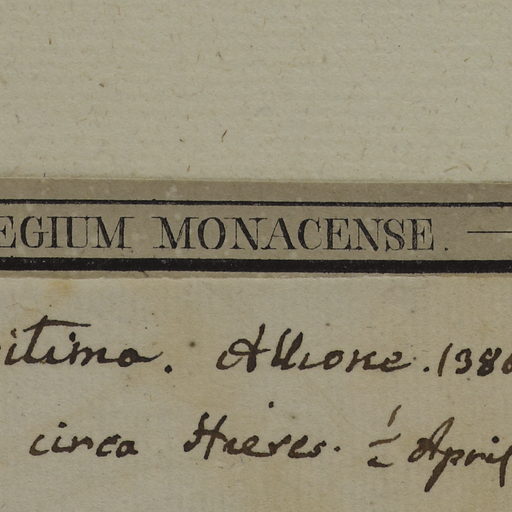 EGIUM MONACENSE. —
itima. Allione. 1386
circa Hieres. 1/2 April